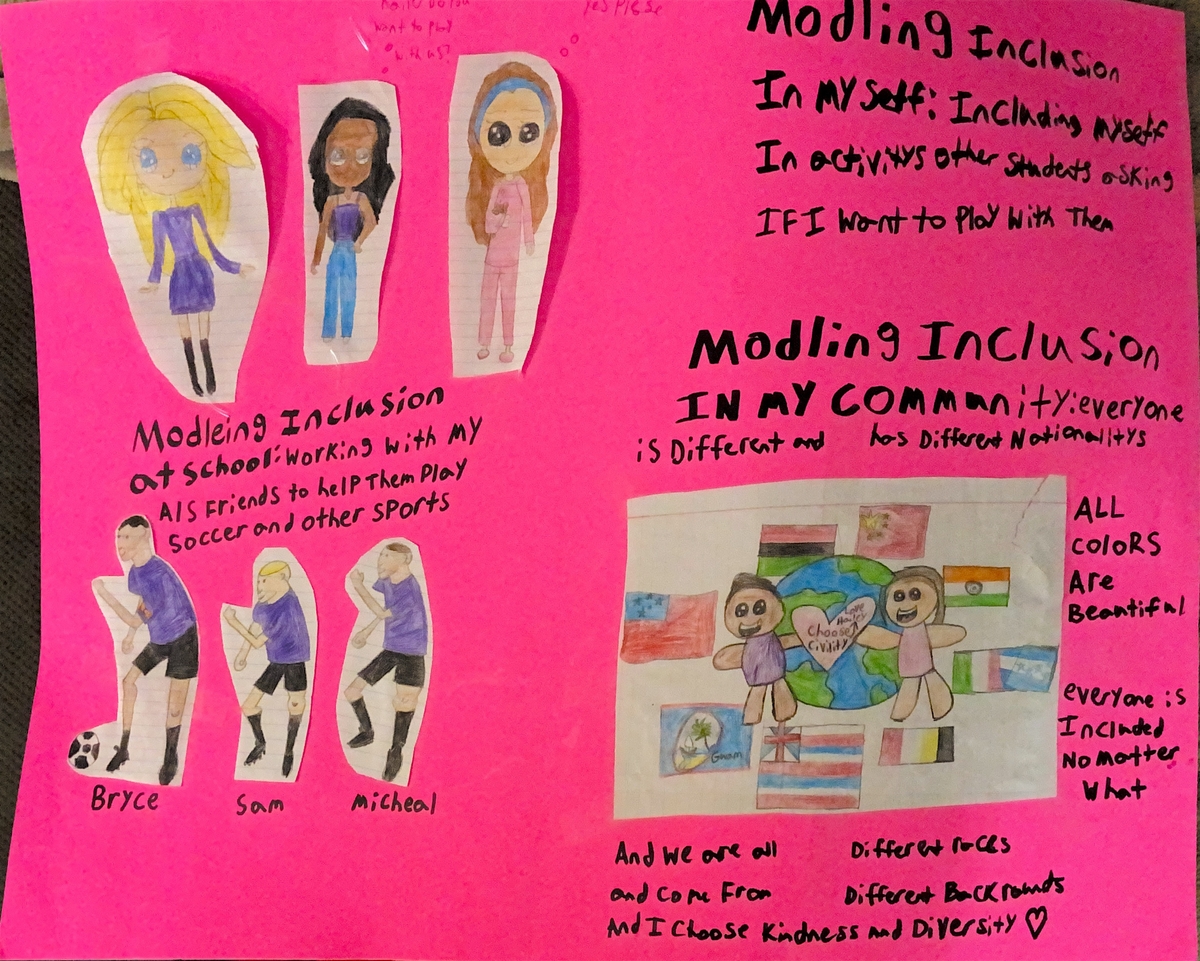 want to play
with us?
yes please
Modling Inclusion
In My self: Including myself
In activitys other students asking
IF I want to Play with Them
Modleing Inclusion
at School: working with My
AIS Friends to help Them Play
Soccer and other sports
Bryce
Sam
Micheal
Modling Inclusion
IN MY COMMunity: everyone
is Different and has Different Nationalitys
Choose
Civility
Love
Hailey
Guam
ALL
COLORS
Are
Beautiful
everyone is
Included
No matter
What
And we are all Different races
and come From Different Backrounds
And I Choose Kindness and Diversity ♡